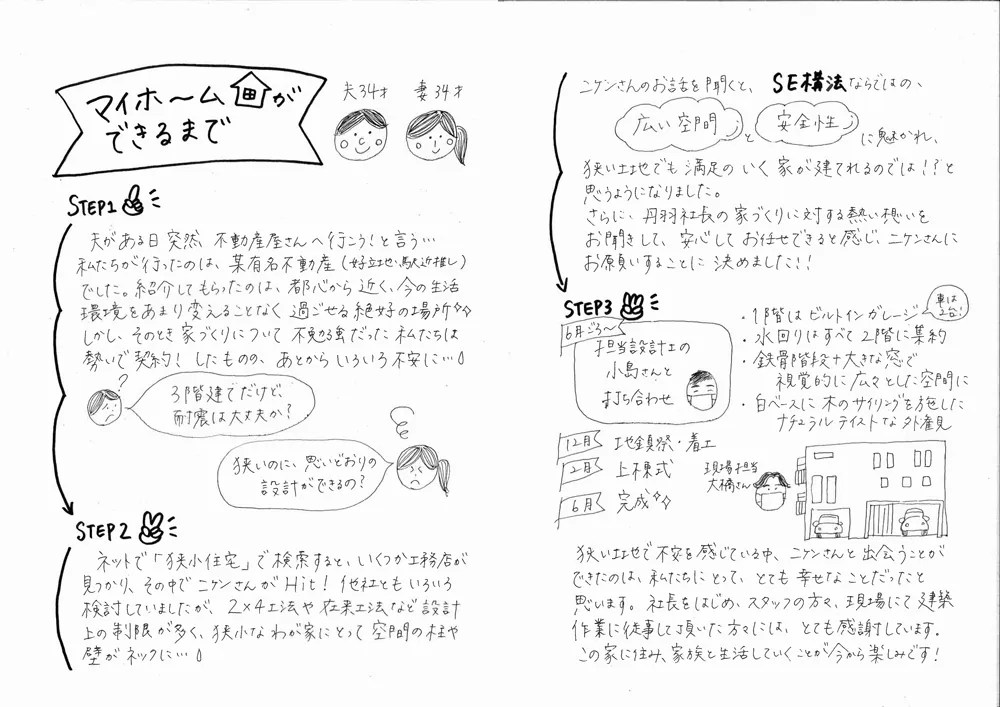 マイホームが
できるまで
夫34才 妻34才
STEP1
夫がある日突然、不動産屋さんへ行こう!と言う…
私たちが行ったのは、某有名不動産(好立地・駅近推し)
でした。紹介してもらったのは、都心から近く、今の生活
環境をあまり変えることなく過ごせる絶好の場所
しかし、そのとき家づくりについて不勉強だった私たちは
勢いで契約!したものの、あとからいろいろ不安に…
?
3階建てだけど、
耐震は大丈夫か?
狭いのに、思いどおりの
設計ができるの?
STEP2
ネットで「狭小住宅」で検索すると、いくつか工務店が
見つかり、その中でニケンさんがHit!他社ともいろいろ
検討していましたが、2×4工法や在来工法など設計
上の制限が多く、狭小なわが家にとって空間の柱や
壁がネックに…
ニケンさんのお話を聞くと、SE構法ならではの、
広い空間と安全性に魅かれ、
狭い土地でも満足のいく家が建てれるのでは!?と
思うようになりました。
さらに、丹羽社長の家づくりに対する熱い想いを
お聞きして、安心してお任せできると感じ、ニケンさんに
お願いすることに決めました!!
STEP3
6月ごろ〜
担当設計士の
小島さんと
打ち合わせ
・1階はビルトインガレージ
車は
2台!
・水回りはすべて2階に集約
・鉄骨階段+大きな窓で
視覚的に広々とした空間に
・白ベースに木のサイリングを施した
ナチュラルテイストな外観
12月 地鎮祭・着工
2月 上棟式
6月 完成
現場担当
大橋さん
狭い土地で不安を感じている中、ニケンさんと出会うことが
できたのは、私たちにとって、とても幸せなことだったと
思います。社長をはじめ、スタッフの方々、現場にて建築
作業に従事して頂いた方々には、とても感謝しています。
この家に住み、家族と生活していくことが今から楽しみです!